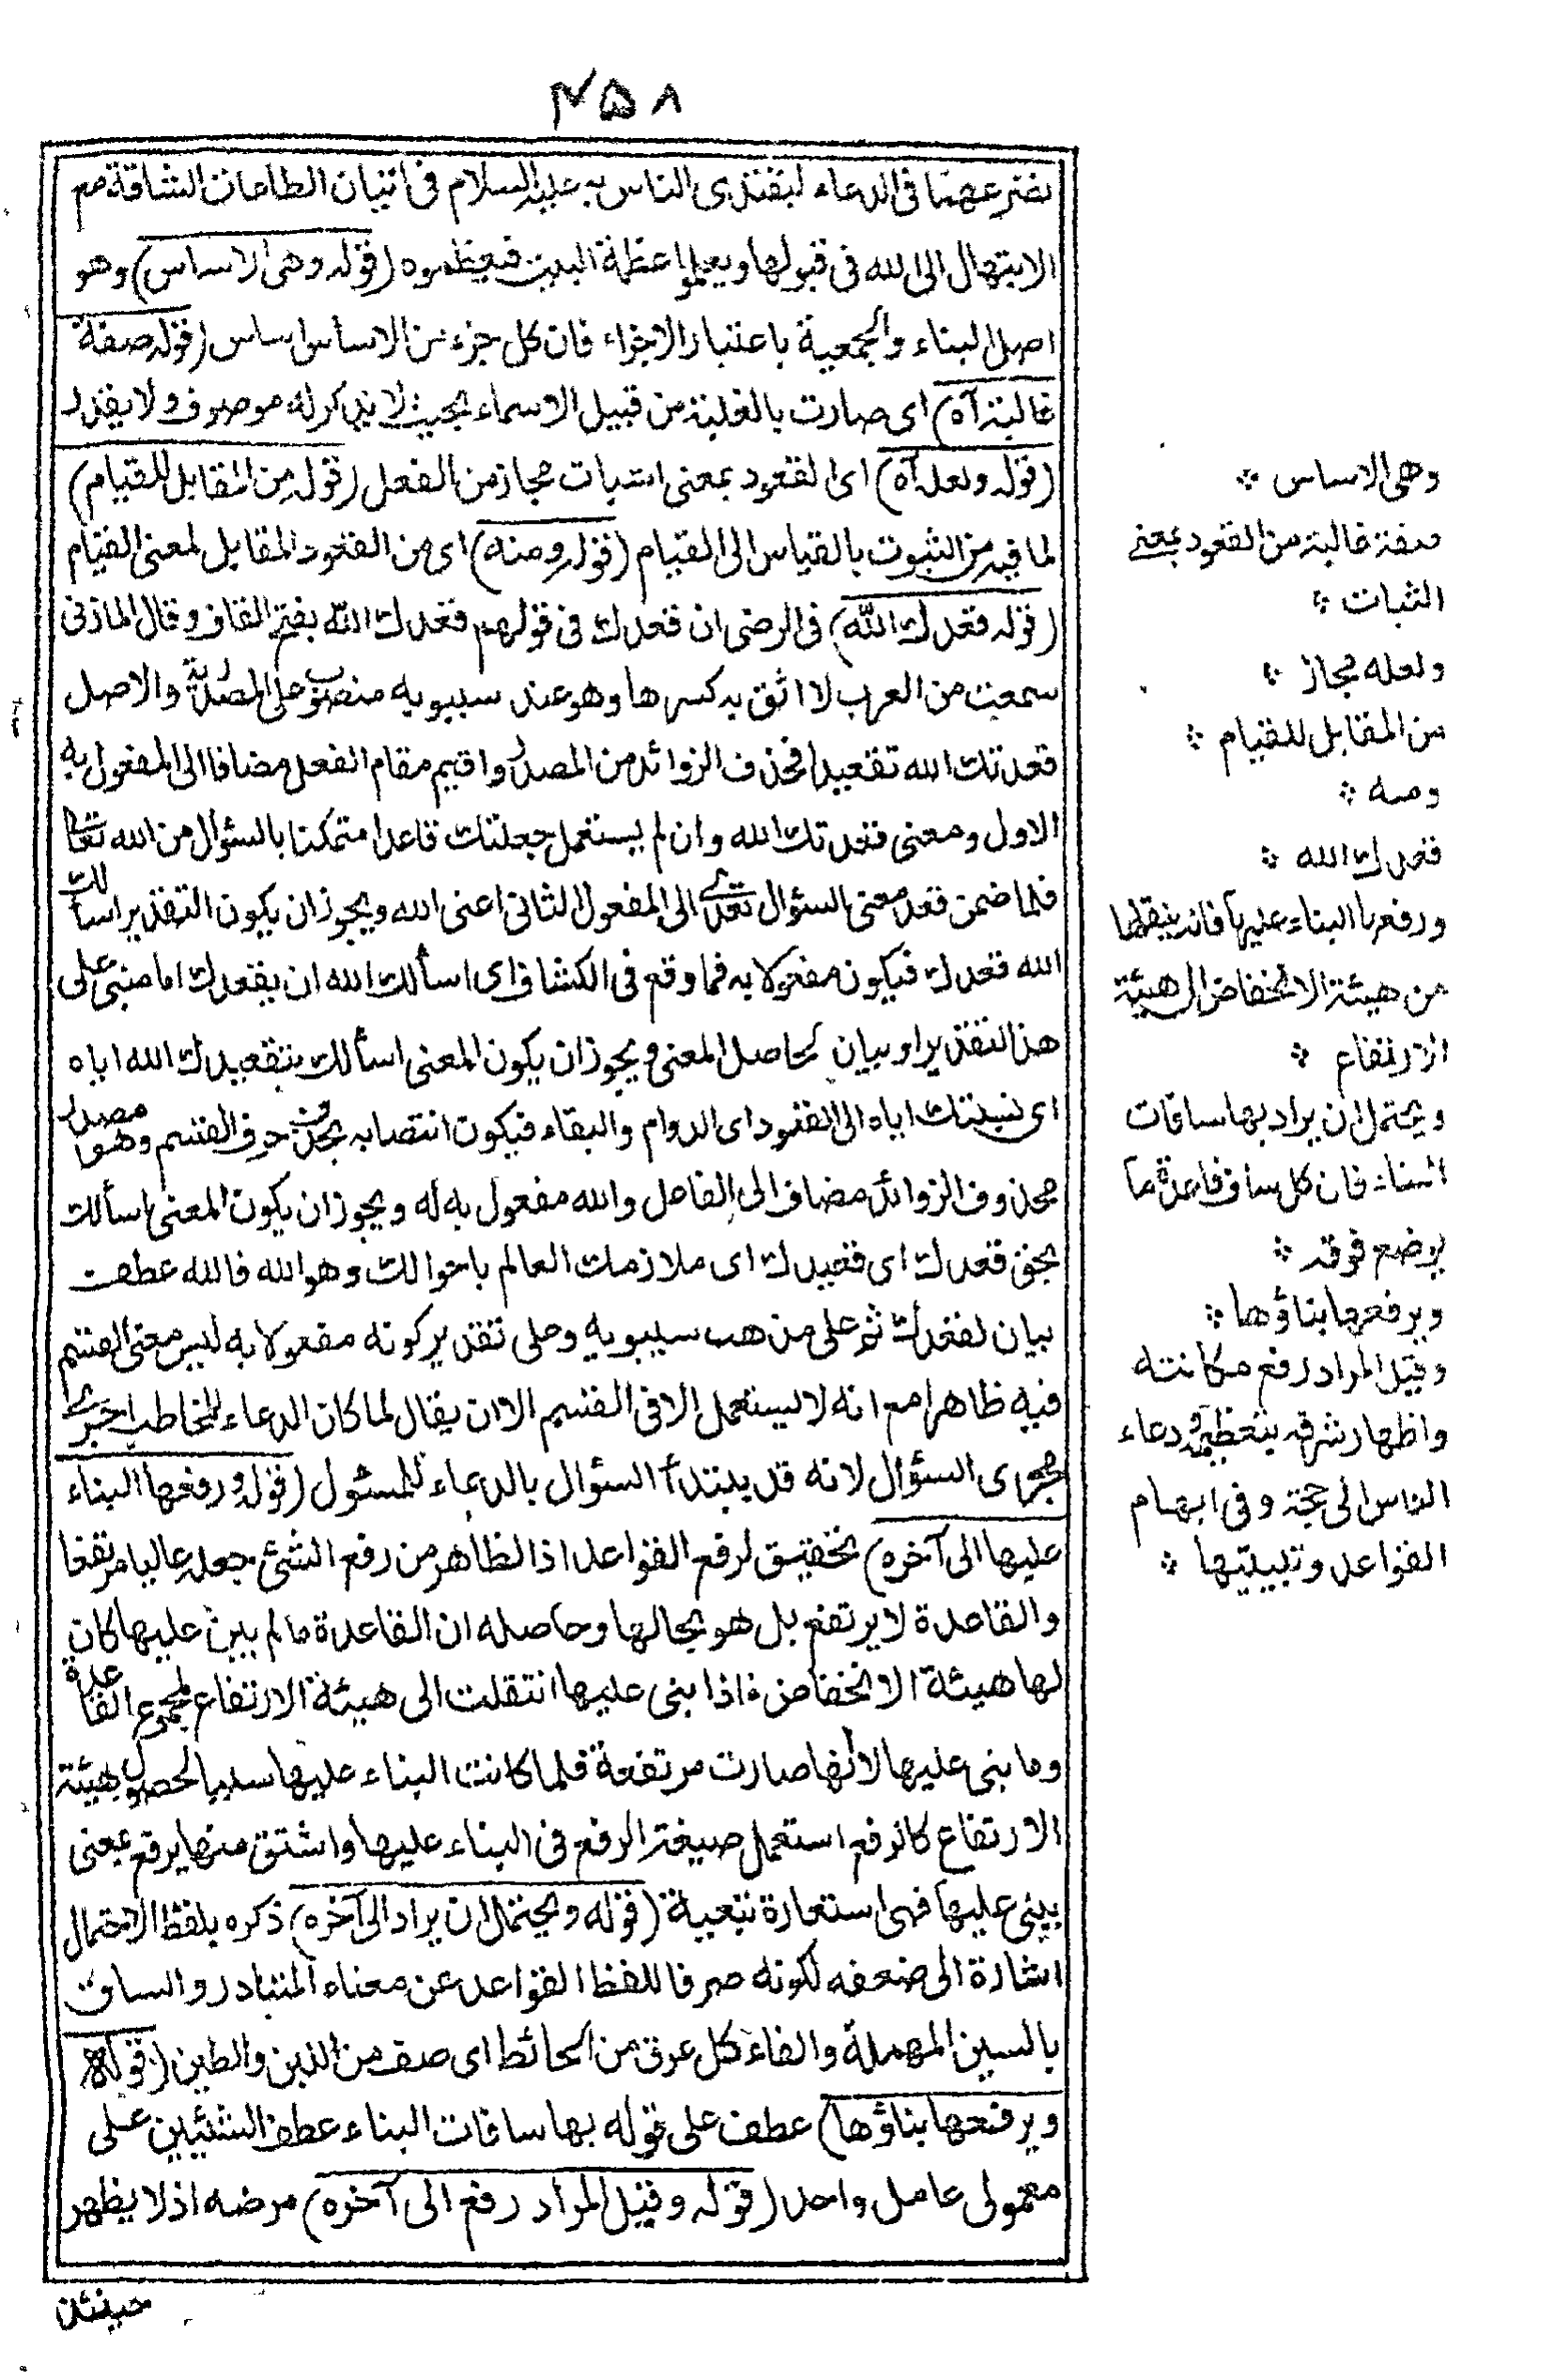 ٤٥٨
تضرعهما فى الدعاء ليقتدى الناس به عليه السلام فى اتيان الطاعات الشاقة مع
الابتهال الى الله فى قبولها ويعلموا عظمة البيت فيعظموه (قوله وهى الاساس) وهو
اصل البناء والجمعية باعتبار الاجزاء فان كل جزء من الاساس اساس (قوله صفة
غالبة آه) اى صارت بالغلبة من قبيل الاسماء بحيث لا يذكر له موصوف ولا يقدر
(قوله ولعله آه) اى القعود بمعنى الثبات مجاز من الفعل (قوله من المقابل للقيام)
لما فيه من الثبوت بالقياس الى القيام (قوله ومنه) اى من القعود المقابل لمعنى القيام
(قوله قعدك الله) فى الرضى ان قعدك فى قولهم قعدك الله بفتح القاف وقال المازنى
سمعت من العرب لا اثق به كسرها وهو عند سيبويه منصوب على المصدرية والاصل
قعدتك الله تقعيدا فحذف الزوائد من المصدر واقيم مقام الفعل مضافا الى المفعول به
الاول ومعنى قعدتك الله وان لم يستعمل جعلتك قاعدا متمكنا بالسؤال من الله تعالى
فلما ضمن قعد معنى السؤال تعدى الى المفعول الثانى اعنى الله ويجوز ان يكون التقدير اسألك
الله قعدك فيكون مفعولا به فما وقع فى الكشاف اى اسألك الله ان يقعدك اما مبنى على
هذا التقدير او بيان لحاصل المعنى ويجوز ان يكون المعنى اسألك بتقعيدك الله اياه
اى نسبتك اياه الى القعود اى الدوام والبقاء فيكون انتصابه بحذف حرف القسم وهو مصدر
محذوف الزوائد مضاف الى الفاعل والله مفعول به له ويجوز ان يكون المعنى اسألك
بحق قعدك اى قعيدك اى ملازمك العالم باحوالك وهو الله فالله عطف
بيان لقعدك ثم على مذهب سيبويه وعلى تقدير كونه مفعولا به ليس معنى القسم
فيه ظاهرا مع انه لا يستعمل الا فى القسم الا ان يقال لما كان الدعاء للمخاطب اجرى
مجرى السؤال لانه قد يبتدأ السؤال بالدعاء للمسئول (قوله ورفعها البناء
عليها الى آخره) تحقيق لرفع القواعد اذ الظاهر من رفع الشئ جعله عاليا مرتفعا
والقاعدة لا يرتفع بل هو بحالها وحاصله ان القاعدة ما لم يبن عليها كان
لها هيئة الانخفاض فاذا بنى عليها انتقلت الى هيئة الارتفاع لمجموع القاعدة
وما بنى عليها لا انها صارت مرتفعة فلما كانت البناء عليها سببا لحصول هيئة
الارتفاع كالرفع استعمل صيغة الرفع فى البناء عليها واشتق منها يرفع بمعنى
يبنى عليها فهى استعارة تبعية (قوله ويحتمل ان يراد الى آخره) ذكره بلفظ الاحتمال
اشارة الى ضعفه لكونه صرفا للفظ القواعد عن معناه المتبادر والساف
بالسين المهملة والفاء كل عرق من الحائط اى صف من اللبن والطين (قوله
ويرفعها بناؤها) عطف على قوله بها سافات البناء عطف الشيئين على
معمولى عامل واحد (قوله وقيل المراد رفع الى آخره) مرضه اذ لا يظهر
حينئذ
وهى الاساس
صفة غالبة من القعود بمعنى
الثبات
ولعله مجاز
من المقابل للقيام
ومنه
قعدك الله
ورفعها البناء عليها فانه ينقلها
من هيئة الانخفاض الى هيئة
الارتفاع
ويحتمل ان يراد بها سافات
البناء فان كل ساف قاعدة ما
يوضع فوقه
ويرفعها بناؤها
وقيل المراد رفع مكانته
واظهار شرفه بتعظيمه ودعاء
الناس الى حجة وفى ابهام
القواعد وتبيينها